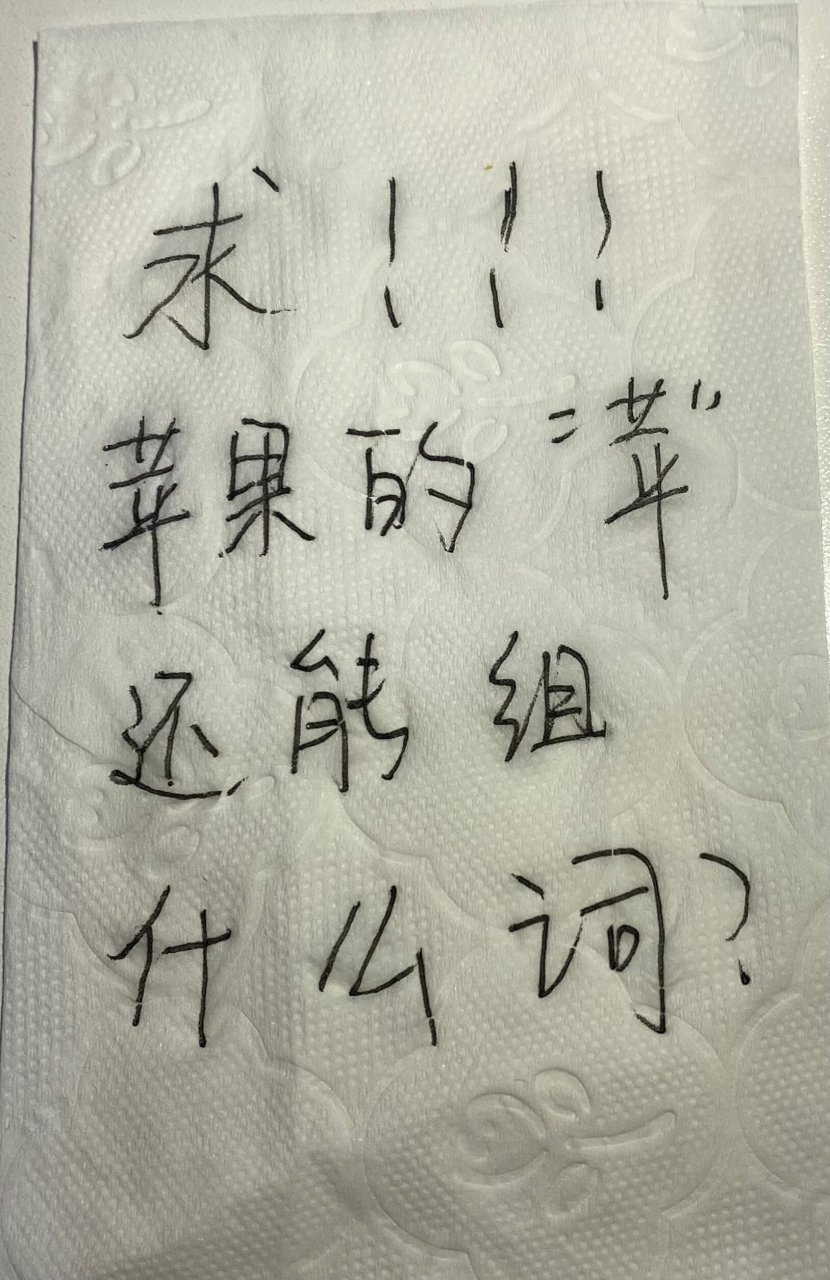 求！！！
苹果的“苹”
还能组
什么词？